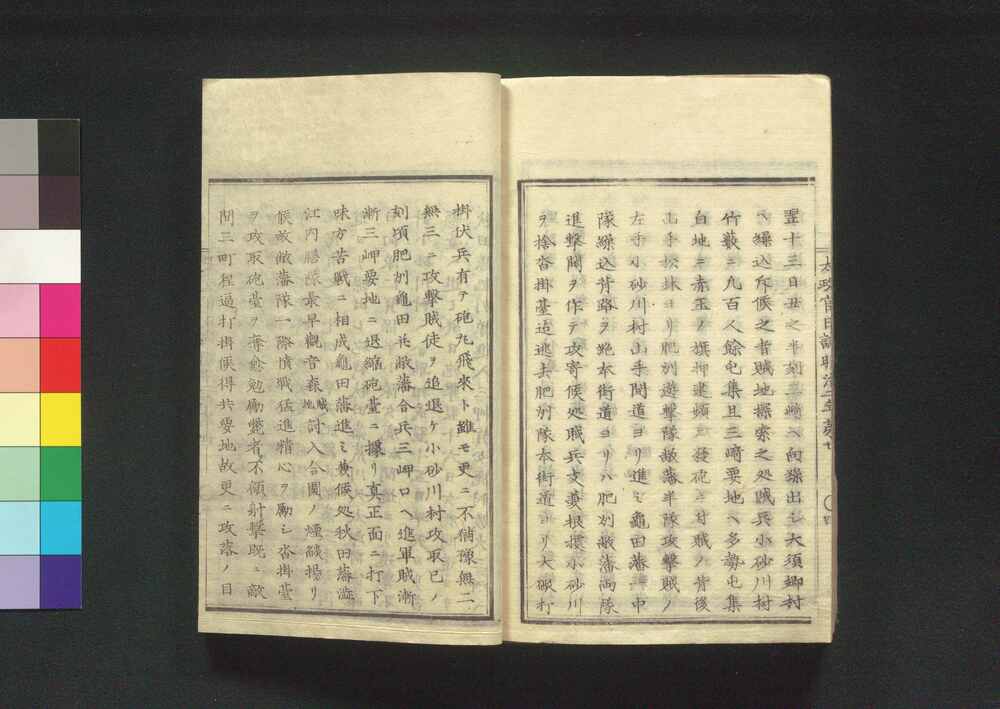 翌十三日丑之半刻三崎ヘ向繰出シ大須郷村
ヘ繰込斥候之者賊地探索之処賊兵小砂川村
竹藪ニ凡百人餘屯集且三崎要地ヘ多勢屯集
白地ニ赤玉ノ旗押建頻ニ發砲ニ付賊ノ背後
山手松林ヨリ肥州遊撃隊敝藩半隊攻撃賊ノ
左手小砂川村山手間道ヨリ進ミ龜田藩一中
隊繰込背路ヲ絶本街道ヨリハ肥州敝藩両隊
進撃鬨ヲ作テ攻寄候処賊兵支兼根據小砂川
ヲ捨沓掛臺迄逃去肥州隊本街道ヨリ大礮打
太政官日誌明治二年第七 〇四
掛伏兵有テ砲丸飛來ト雖モ更ニ不猶豫無二
無三ニ攻撃賊徒ヲ追退ケ小砂川村攻取巳ノ
刻頃肥州龜田并敝藩合兵三岬口ヘ進軍賊漸
漸三岬要地ニ退縮砲臺ニ據リ真正面ニ打下
味方苦戦ニ相成龜田藩進ミ兼候処秋田藩澁
江内膳隊最早觀音森賊地討入合圖ノ煙燄揚リ
候故敝藩隊一際憤戦猛進精心ヲ勵シ沓掛臺
ヲ攻取砲臺ヲ奪愈勉勵斃者不顧射撃既ニ敵
間三町程逼打掛候得共要地故更ニ攻落ノ目